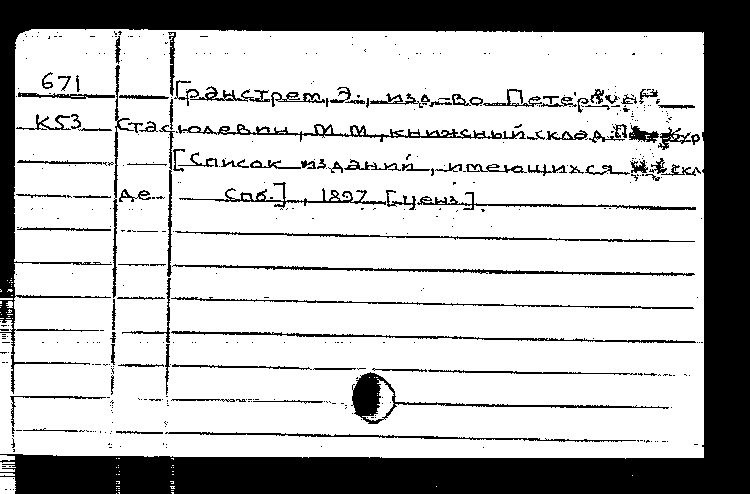 671 Гранстрем, Э., изд-во Петербург
К53 Стасюлевич, М М, книжный склад, Петербург
[Список изданий, имеющихся в скла-
де Спб.], 1897 [ценз.].